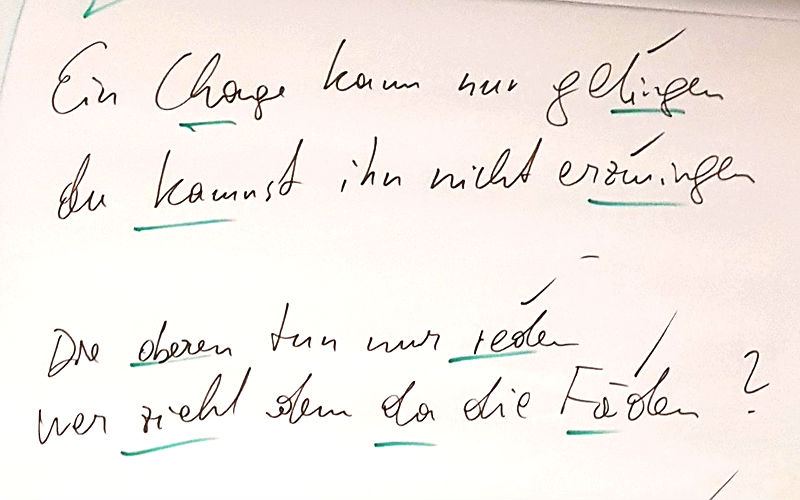 Ein Change kann nur gelingen
du kannst ihn nicht erzwingen
Die oberen tun nur reden
wer zieht denn da die Fäden?